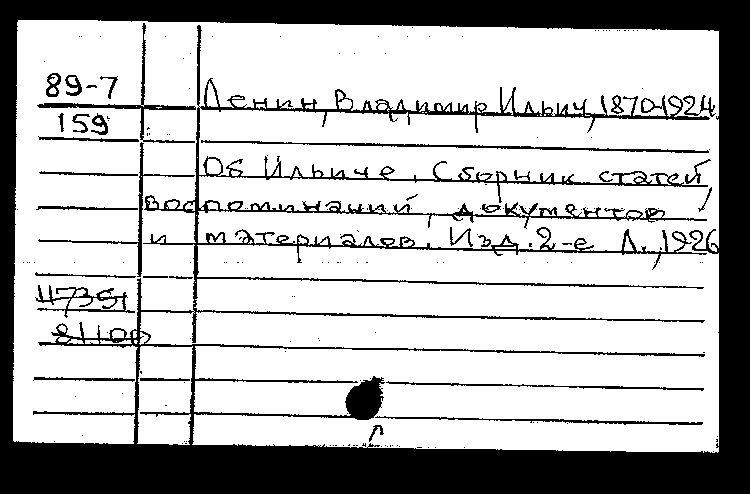 89-7 Ленин, Владимир Ильич, 1870-1924.
159
Об Ильиче. Сборник статей,
воспоминаний, документов
и материалов. Изд. 2-е Л., 1926
117351
81100